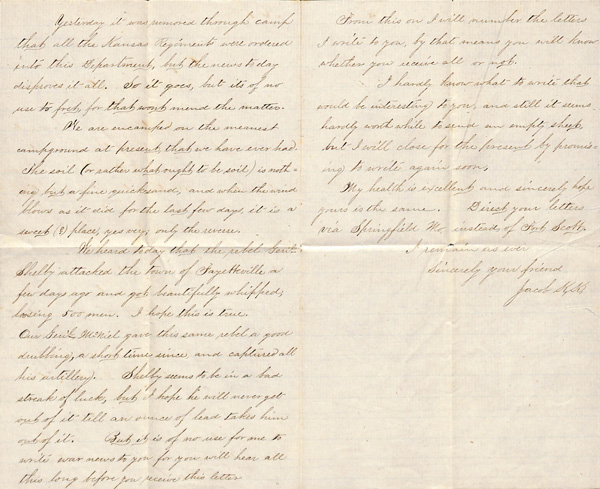 Yesterday it was rumored through camp
that all the Kansas Regiment were ordered
into this Department, but the news to day
disproves it all. So it goes, but its of no
use to fret, for that wont mend the matter.
We are encamped on the meanest
campground at present, that we have ever had.
The soil (or rather what ought to be soil) is noth-
ing but a fine quicksand, and when the wind
blows as it did for the last few days it is a
sweet (?) place, yes very, only the reverse.
We heard today that the rebel Genl.
Shelby attacked the town of Fayetteville a
few days ago and got beautifully whipped,
losing 500 men. I hope this is true.
Our Genl. McNiel gave this same rebel a good
drubbing, a short time since and captured all
his artillery. Shelby seems to be in a bad
streak of luck, but I hope he will never get
out of it till an ounce of lead takes him
out of it. But it is of no use for me to
write war news to you for you will hear all
this long before you receive this letter
From this on I will number the letters
I write to you, by that means you will know
whether you receive all or not.
I hardly know what to write that
would be interesting to you, and still it seems
hardly worth while to send an empty sheet,
but I will close for the present by promis-
ing to write again soon.
My health is excellent and sincerely hope
yours is the same. Direct your letters
via Springfield Mo. instead of Fort Scott.
I remain as ever
Sincerely your friend
Jacob